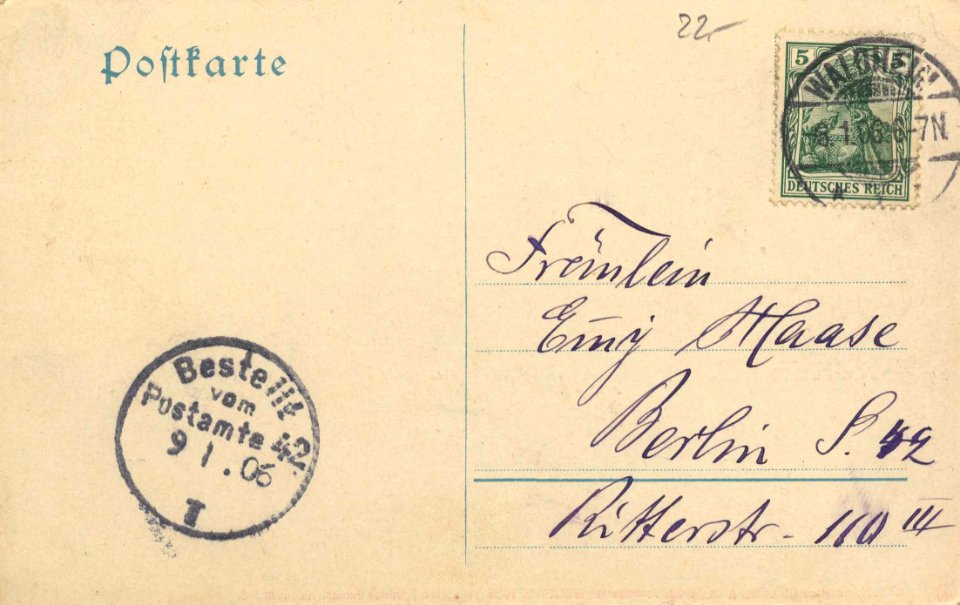 Postkarte
22.-
5 5
DEUTSCHES REICH
WALDHEIM
8.1.06 6-7N
Fräulein
Emy Haase
Berlin S. 42
Ritterstr. 110 III
Bestellt
vom
Postamte 42
9 1.06
T